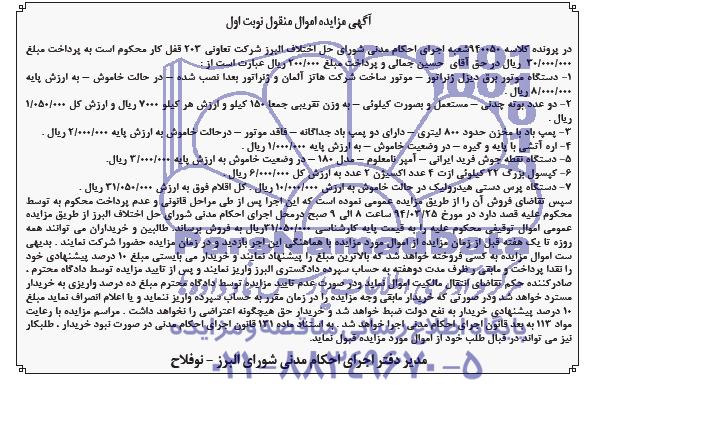 آگهی مزایده اموال منقول نوبت اول
در پرونده کلاسه ۹۴۰۰۵۰شعبه اجرای احکام مدنی شورای حل اختلاف البرز شرکت تعاونی ۲۰۳ قفل کار محکوم است به پرداخت مبلغ
۳۰/۰۰۰/۰۰۰ ریال در حق آقای حسین جمالی و پرداخت مبلغ ۲۰۰/۰۰۰ ریال عبارت است از :
۱- دستگاه موتور برق دیزل ژنراتور – موتور ساخت شرکت هاتز آلمان و ژنراتور بعدا نصب شده – در حالت خاموش – به ارزش پایه
۸/۰۰۰/۰۰۰ ریال .
۲- دو عدد بوته چدنی – مستعمل و بصورت کیلوئی – به وزن تقریبی جمعا ۱۵۰ کیلو و ارزش هر کیلو ۷۰۰۰ ریال و ارزش کل ۱/۰۵۰/۰۰۰
ریال .
۳- پمپ باد با مخزن حدود ۸۰۰ لیتری – دارای دو پمپ باد جداگانه – فاقد موتور – درحالت خاموش به ارزش پایه ۲/۰۰۰/۰۰۰ ریال .
۴- اره آتشی با پایه و گیره – در وضعیت خاموش – به ارزش پایه ۱/۰۰۰/۰۰۰ ریال .
۵- دستگاه نقطه جوش فرید ایرانی – آمپر نامعلوم – مدل ۱۸۰ – در وضعیت خاموش به ارزش پایه ۳/۰۰۰/۰۰۰ ریال.
۶- کپسول بزرگ ۲۲ کیلوئی ازت ۴ عدد اکسیژن ۲ عدد به ارزش کل ۶/۰۰۰/۰۰۰ ریال .
۷- دستگاه پرس دستی هیدرولیک در حالت خاموش به ارزش ۱۰/۰۰۰/۰۰۰ ریال . کل اقلام فوق به ارزش ۳۱/۰۵۰/۰۰۰ ریال .
سپس تقاضای فروش آن را از طریق مزایده عمومی نموده است که این اجرا پس از طی مراحل قانونی و عدم پرداخت محکوم به توسط
محکوم علیه قصد دارد در مورخ ۹۴/۰۳/۲۵ ساعت ۸ الی ۹ صبح درمحل اجرای احکام مدنی شورای حل اختلاف البرز از طریق مزایده
عمومی اموال توقیفی محکوم علیه را به قیمت پایه کارشناسی ۳۱/۰۵۰/۰۰۰ریال به فروش برساند. طالبین و خریداران می توانند همه
روزه تا یک هفته قبل از زمان مزایده از اموال مورد مزایده با هماهنگی این اجر بازدید و در زمان مزایده حضورا شرکت نمایند . بدیهی
ست اموال مزایده به کسی فروخته خواهد شد که بالاترین مبلغ را پیشنهاد نمایند و خریدار می بایستی مبلغ ۱۰ درصد پیشنهادی خود
را نقدا پرداخت و مابقی و ظرف مدت دوهفته به حساب سپرده دادگستری البرز واریز نمایند و پس از تایید مزایده توسط دادگاه محترم .
صادرکننده حکم تقاضای انتقال مالکیت اموال نماید ودر صورت عدم تایید مزایده توسط دادگاه محترم مبلغ ده درصد واریزی به خریدار
مسترد خواهد شد ودر صورتی که خریدار مابقی وجه مزایده را در زمان مقرر به حساب سپرده واریز ننماید و یا اعلام انصراف نماید مبلغ
۱۰ درصد پیشنهادی خریدار به نفع دولت ضبط خواهد شد و خریدار حق هیچگونه اعتراضی را نخواهد داشت . مراسم مزایده با رعایت
مواد ۱۱۳ به بعد قانون اجرای احکام مدنی اجرا خواهد شد . به استناد ماده ۱۳۱ قانون اجرای احکام مدنی در صورت نبود خریدار ، طلبکار
نیز می تواند در قبال طلب خود از اموال مورد مزایده قبول نماید.
مدیر دفتر اجرای احکام مدنی شورای البرز – نوفلاح
ParsNamadData
پایگاه اطلاع رسانی مناقصه و مزایده
۰۲۱-۸۸۳۴۹۶۷۰-۵